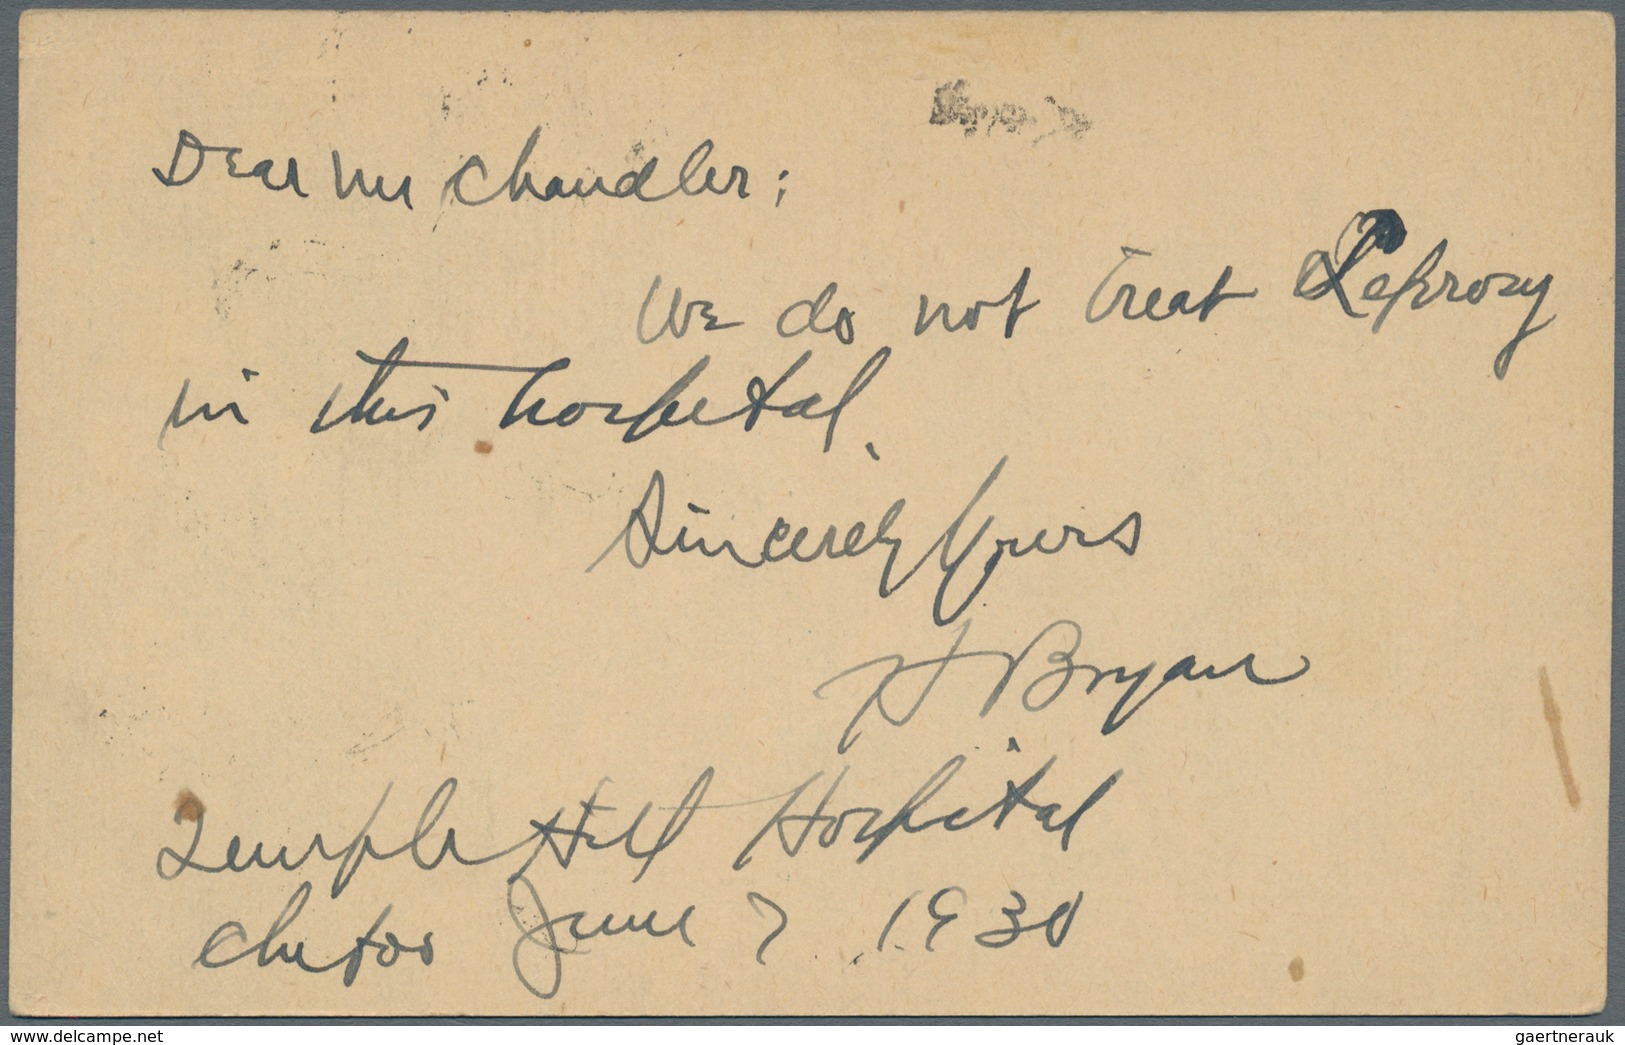 Dear Mr Chandler:
We do not treat Leprosy
in this hospital.
Sincerely Yours
H Bryan
Temple Hill Hospital
Chefoo June 7 1930
www.delcampe.net
gaertnerauk